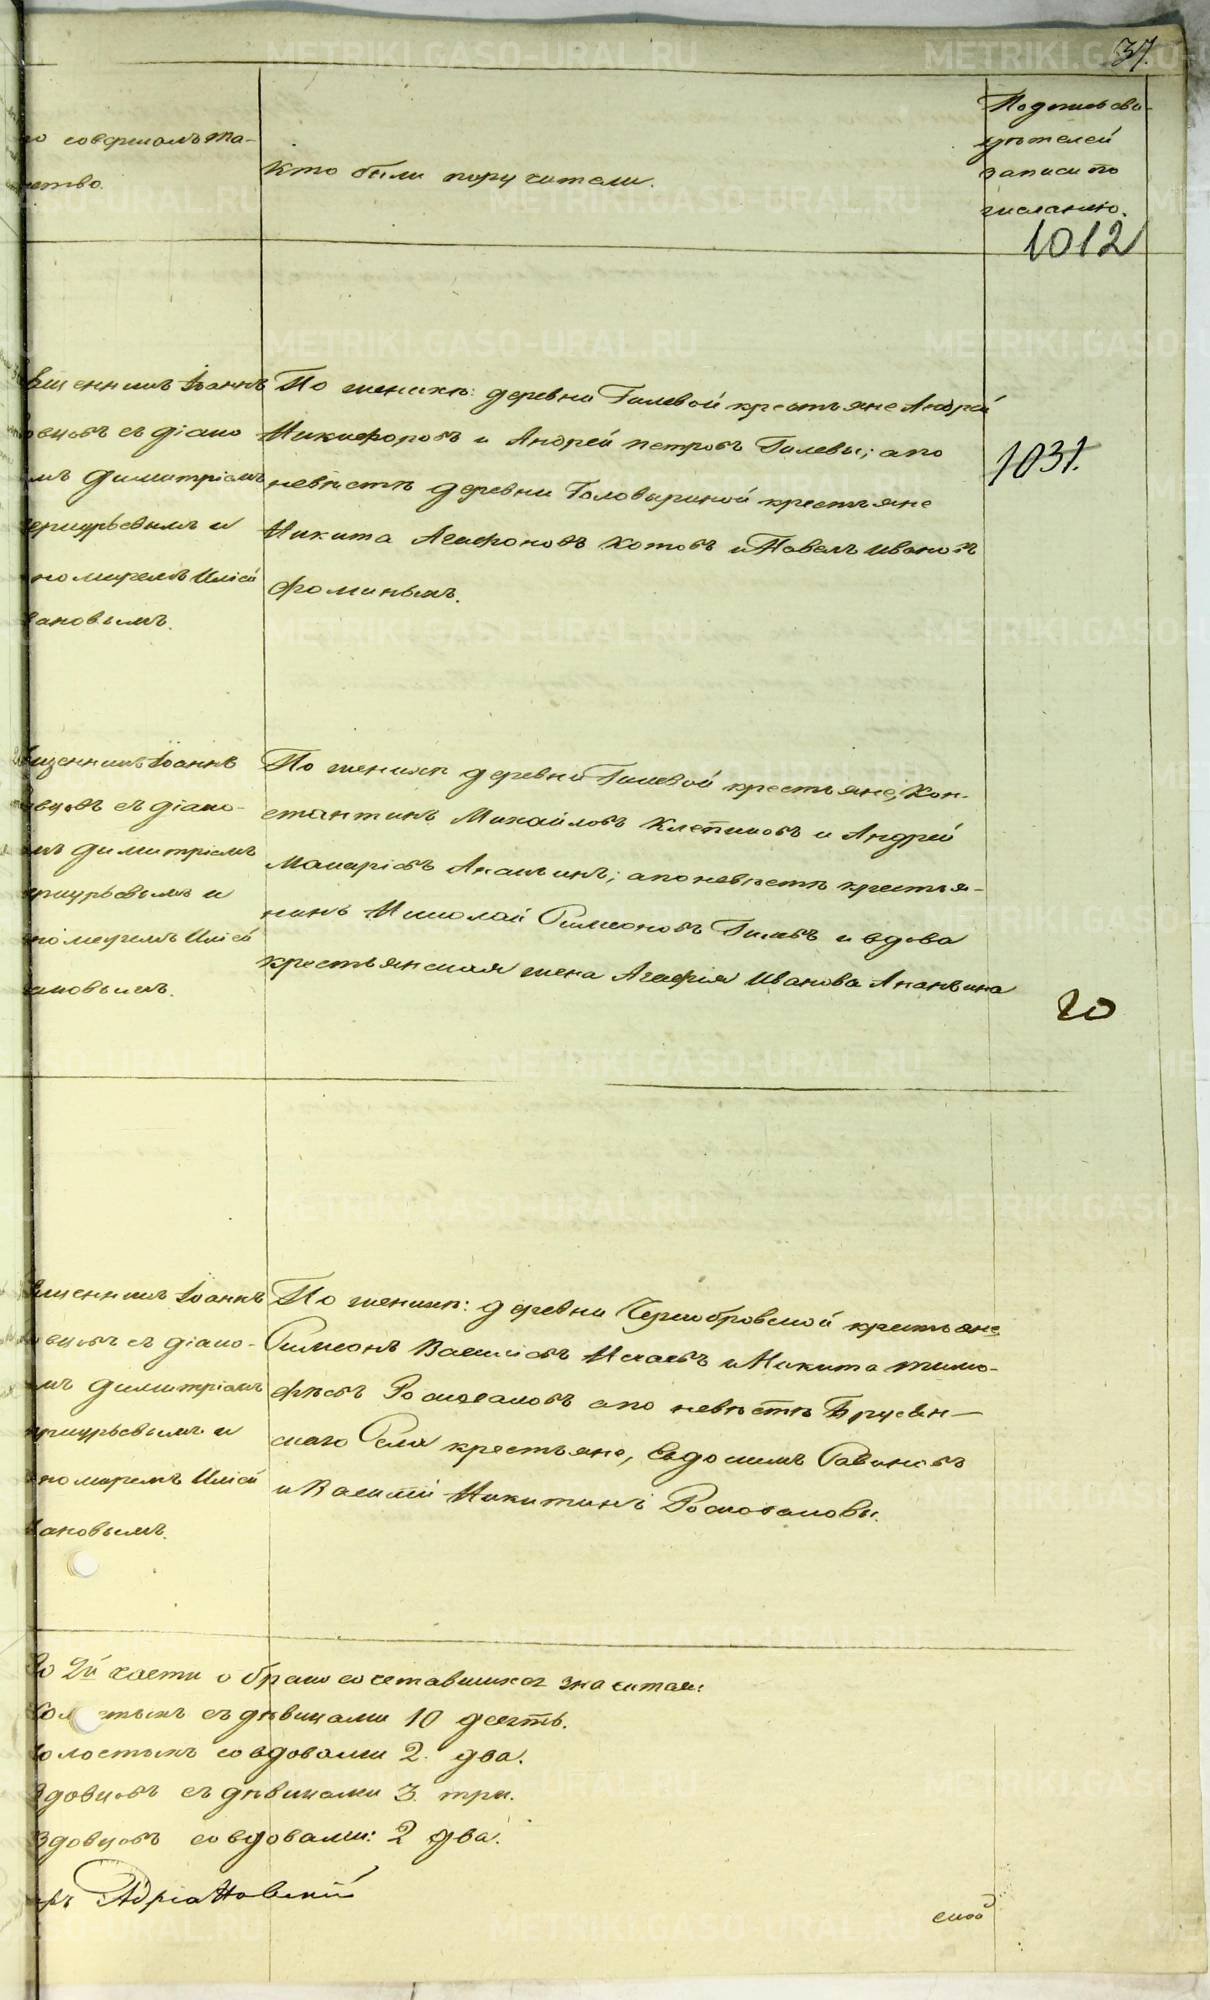 37.
го совершалъ та-
инство.
Кто были поручители.
Подпись сви-
дѣтелей
записи по
желанію.
1012
Священникъ Іоаннъ
съ діако
мъ Димитріемъ
и
пономаремъ Иліей
Ивановымъ.
По женихѣ: деревни Гилевой крестьяне Андрей
Никифоровъ и Андрей Петровъ Гилевы; а по
невѣстѣ деревни Головыриной крестьяне
Никита Агафоновъ Котовъ и Павелъ Ивановъ
Фоминымъ.
1031.
Священникъ Іоаннъ
съ діако-
мъ Димитріемъ
и
пономаремъ Иліей
Ивановымъ.
По женихѣ деревни Гилевой крестьяне, Кон-
стантинъ Михайловъ Клепиковъ и Андрей
Макаріевъ Ананьинъ; а по невѣстѣ крестья-
нинъ Николай Симеоновъ Гилевъ и вдова
крестьянская жена Агафія Иванова Ананьина
20
Священникъ Іоаннъ
съ діако-
мъ Димитріемъ
и
пономаремъ Иліей
Ивановымъ.
По женихѣ: деревни Чернобровской крестьяне
Симеонъ Васильевъ Исаевъ и Никита Тимо-
фѣевъ а по невѣстѣ Брусян-
скаго Села крестьяне, Евдокимъ Савиновъ
и Василій Никитинъ
Во 2й части о бракосочетавшихся значится:
Холостыхъ съ дѣвицами 10 десять.
Холостыхъ со вдовами 2. два.
Вдовцовъ съ дѣвицами 3. три.
Вдовцовъ со вдовами: 2 два.
Адріановскій
METRIKI.GASO-URAL.RU